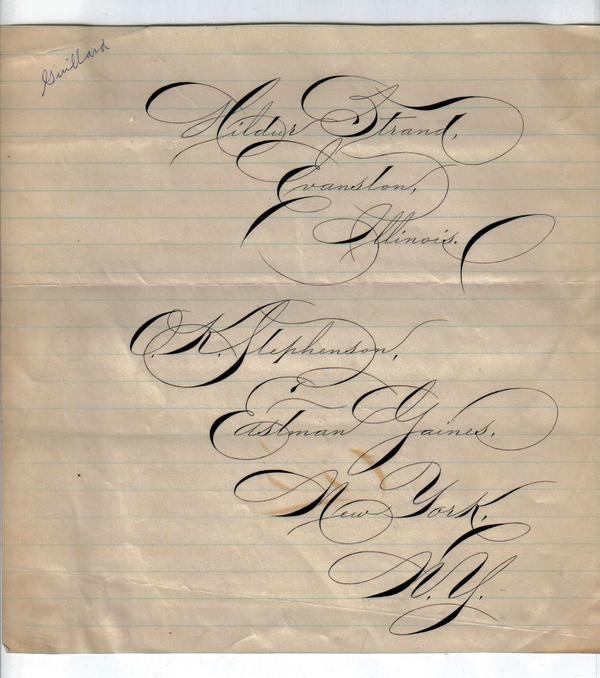 Guillard
Hildur Strand,
Evanston,
Illinois.
O.K. Stephenson,
Eastman Gaines,
New York,
N.Y.